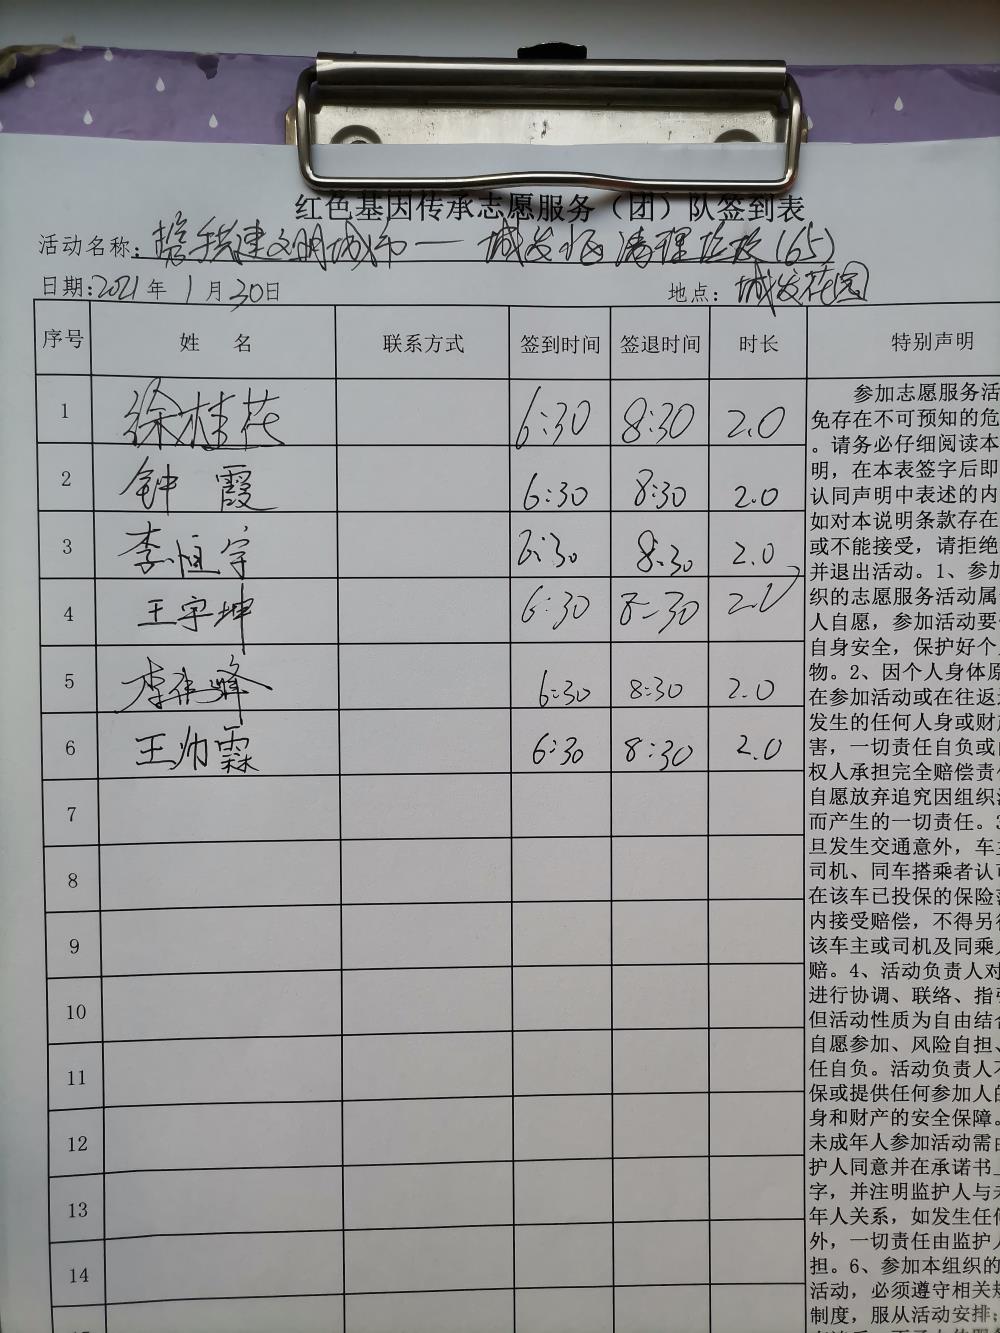 红色基因传承志愿服务（团）队签到表
活动名称：携手共建文明城市——城发小区清理垃圾（65）
日期：2021年1月30日 地点：城发花园
序号 姓 名 联系方式 签到时间 签退时间 时长 特别声明
1 徐桂花 6:30 8:30 2.0
2 钟霞 6:30 8:30 2.0
3 李恒宇 6:30 8:30 2.0
4 王宇坤 6:30 8:30 2.0
5 李 6:30 8:30 2.0
6 王帅霖 6:30 8:30 2.0
7
8
9
10
11
12
13
14
参加志愿服务活
免存在不可预知的危
。请务必仔细阅读本
明，在本表签字后即
认同声明中表述的内
如对本说明条款存在
或不能接受，请拒绝
并退出活动。1、参加
织的志愿服务活动属
人自愿，参加活动要
自身安全，保护好个
物。2、因个人身体原
在参加活动或在往返
发生的任何人身或财
害，一切责任自负或
权人承担完全赔偿责
自愿放弃追究因组织
而产生的一切责任。3
旦发生交通意外，车
司机、同车搭乘者认
在该车已投保的保险
内接受赔偿，不得另
该车主或司机及同乘
赔。4、活动负责人对
进行协调、联络、指
但活动性质为自由结
自愿参加、风险自担、
任自负。活动负责人不
保或提供任何参加人的
身和财产的安全保障。
未成年人参加活动需由
护人同意并在承诺书上
字，并注明监护人与未
年人关系，如发生任何
外，一切责任由监护人
担。6、参加本组织的
活动，必须遵守相关规
制度，服从活动安排；